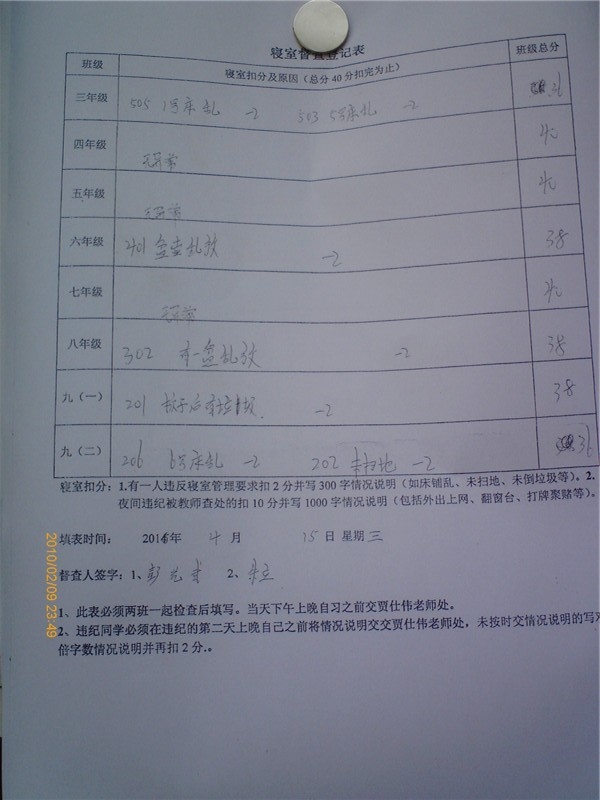 寝室督查登记表
班级 寝室扣分及原因（总分 40 分扣完为止） 班级总分
三年级 505 1号床乱 -2 503 5号床乱 -2 36
四年级 无异常 40
五年级 无异常 40
六年级 401 盒壶乱放 -2 38
七年级 无异常 40
八年级 302 有一盒乱放 -2 38
九（一） 201 -2 38
九（二） 206 6号床乱 -2 202 未扫地 -2 36
寝室扣分：1.有一人违反寝室管理要求扣 2 分并写 300 字情况说明（如床铺乱、未扫地、未倒垃圾等）。2.
夜间违纪被教师查处的扣 10 分并写 1000 字情况说明（包括外出上网、翻窗台、打牌聚赌等）。
填表时间： 年 4 月 15 日 星期 三
督查人签字：1、 2、
1、此表必须两班一起检查后填写。当天下午上晚自习之前交贾仕伟老师处。
2、违纪同学必须在违纪的第二天上晚自己之前将情况说明交交贾仕伟老师处，未按时交情况说明的写
倍字数情况说明并再扣 2 分.。
2010/02/09 23:49